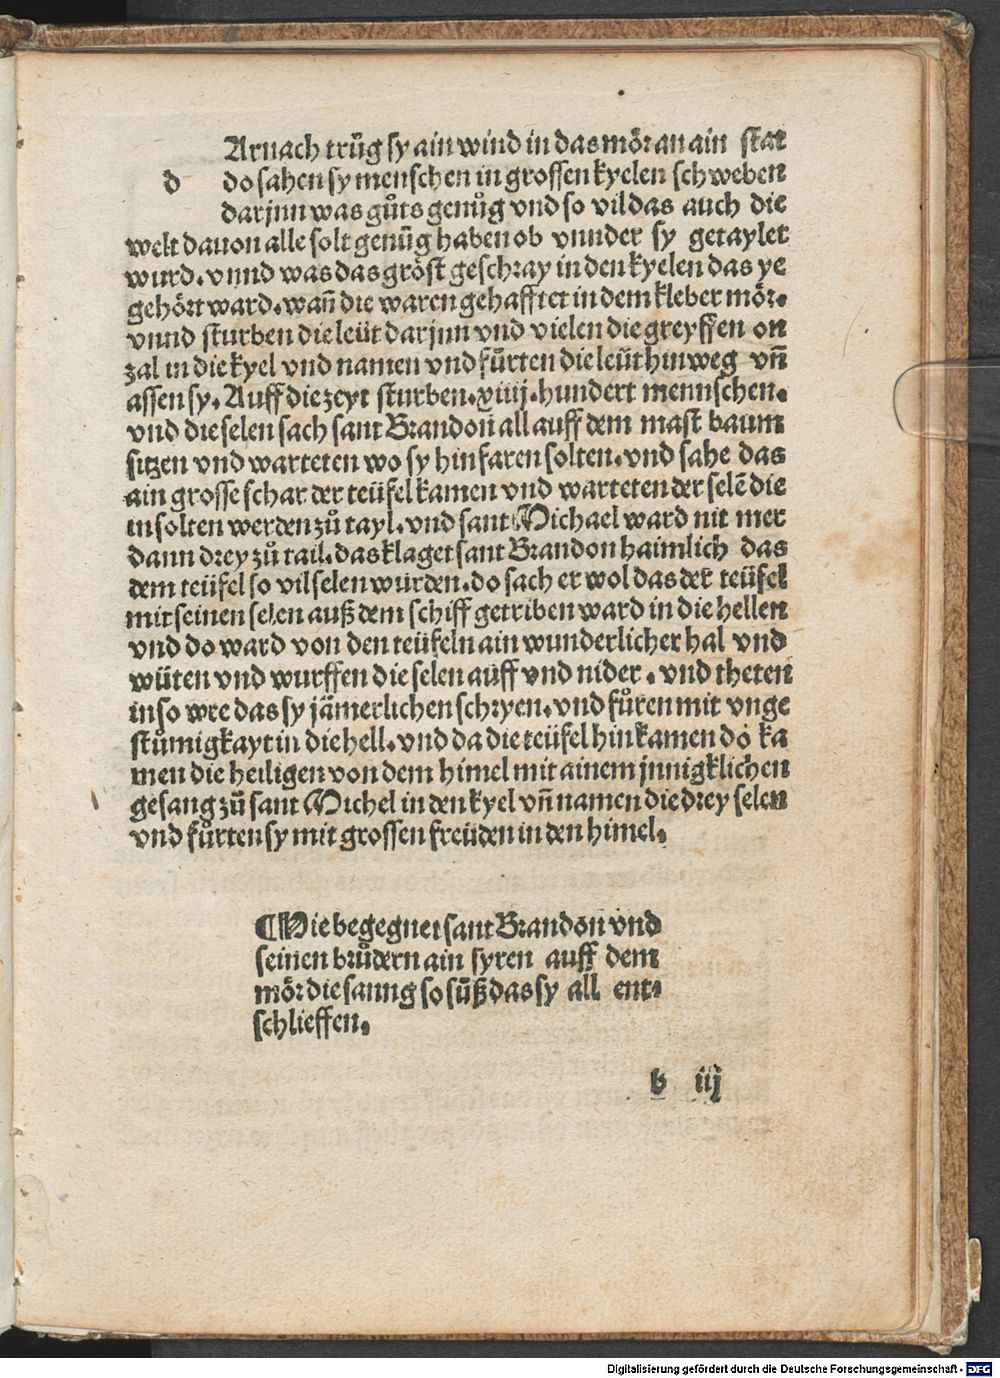 Arnach trůg sy ain wind in das mör an ain stat
d do sahen sy menschen in grossen kyelen schweben
darjnn was gůts genůg vnd so vil das auch die
welt dauon alle solt genůg haben ob vnnder sy getaylet
wurd. vnnd was das gröst geschray in den kyelen das ye
gehört ward. wañ die waren gehafftet in dem kleber mör.
vnnd sturben die leüt darjnn vnd vielen die greyffen on
zal in die kyel vnd namen vnd fůrten die leüt hinweg vñ
assen sy. Auff die zeyt sturben .xiiij. hundert mennschen.
vnd die selen sach sant Brandon all auff dem mast baum
sitzen vnd warteten wo sy hin faren solten. vnd sahe das
ain grosse schar der teüfel kamen vnd warteten der selē die
in solten werden zů tayl. vnd sant Michael ward nit mer
dann drey zů tail. das klaget sant Brandon haimlich das
dem teüfel so vil selen wurden. do sach er wol das der teüfel
mit seinen selen auß dem schiff getriben ward in die hellen
vnd do ward von den teüfeln ain wunderlicher hal vnd
wüten vnd wurffen die selen auff vnd nider. vnd theten
in so wee das sy jämerlichen schryen. vnd fůren mit vnge
stümigkayt in die hell. vnd da die teüfel hin kamen do ka
men die heiligen von dem himel mit ainem jnnigklichen
gesang zů sant Michel in den kyel vñ namen die drey selen
vnd fůrten sy mit grossen freüden in den himel.
¶ Wie begegnet sant Brandon vnd
seinen brůdern ain syren auff dem
mör die sanng so sůß das sy all ent-
schlieffen.
b iij
Digitalisierung gefördert durch die Deutsche Forschungsgemeinschaft - DFG